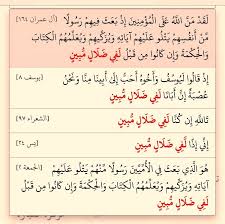 لَقَدْ مَنَّ اللَّهُ عَلَى الْمُؤْمِنِينَ إِذْ بَعَثَ فِيهِمْ رَسُولًا [آل عمران ١٦٤]
مِنْ أَنْفُسِهِمْ يَتْلُو عَلَيْهِمْ آيَاتِهِ وَيُزَكِّيهِمْ وَيُعَلِّمُهُمُ الْكِتَابَ
وَالْحِكْمَةَ وَإِنْ كَانُوا مِنْ قَبْلُ لَفِي ضَلَالٍ مُبِينٍ
إِذْ قَالُوا لَيُوسُفُ وَأَخُوهُ أَحَبُّ إِلَى أَبِينَا مِنَّا وَنَحْنُ [يوسف ٨]
عُصْبَةٌ إِنَّ أَبَانَا لَفِي ضَلَالٍ مُبِينٍ
تَاللَّهِ إِنْ كُنَّا لَفِي ضَلَالٍ مُبِينٍ [الشعراء ٩٧]
إِنِّي إِذًا لَفِي ضَلَالٍ مُبِينٍ [يس ٢٤]
هُوَ الَّذِي بَعَثَ فِي الْأُمِّيِّينَ رَسُولًا مِنْهُمْ يَتْلُو عَلَيْهِمْ [الجمعة ٢]
آيَاتِهِ وَيُزَكِّيهِمْ وَيُعَلِّمُهُمُ الْكِتَابَ وَالْحِكْمَةَ وَإِنْ كَانُوا مِنْ قَبْلُ
لَفِي ضَلَالٍ مُبِينٍ